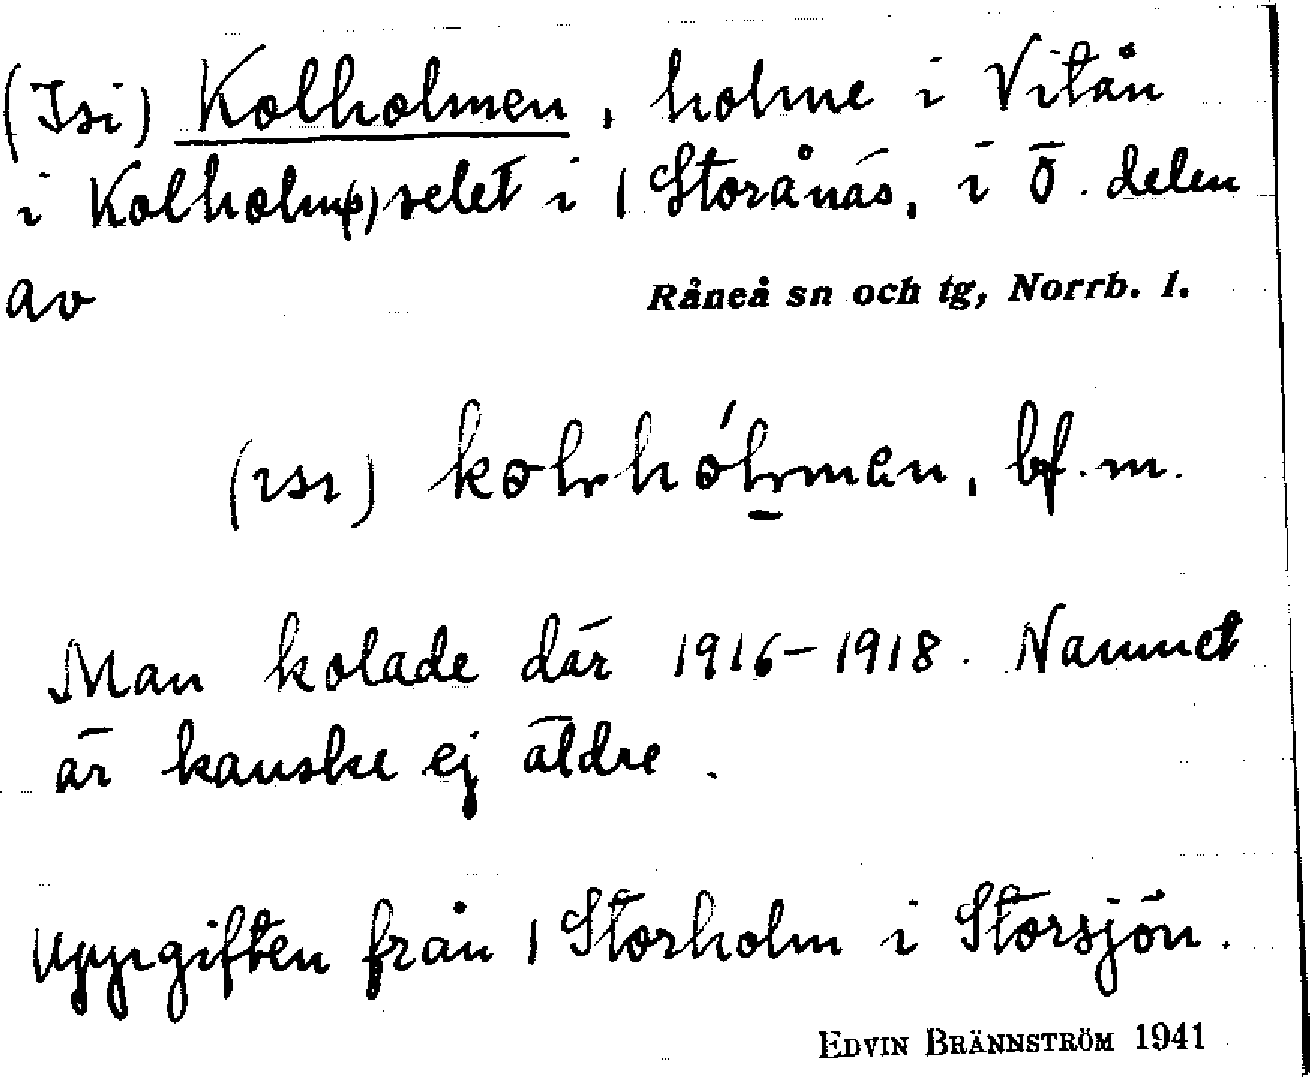 (Isi) Kolholmen, holme i Vitån
i Kolholm(s)selet i 1 Storånäs, i ö. delen
av Råneå sn och tg, Norrb. l.
(ısı) kolrhólrmen, bf. m.
Man kolade där 1916-1918. Namnet
är kanske ej äldre.
Uppgiften från 1 Storholm i Storsjön.
EDVIN BRÄNNSTRÖM 1941